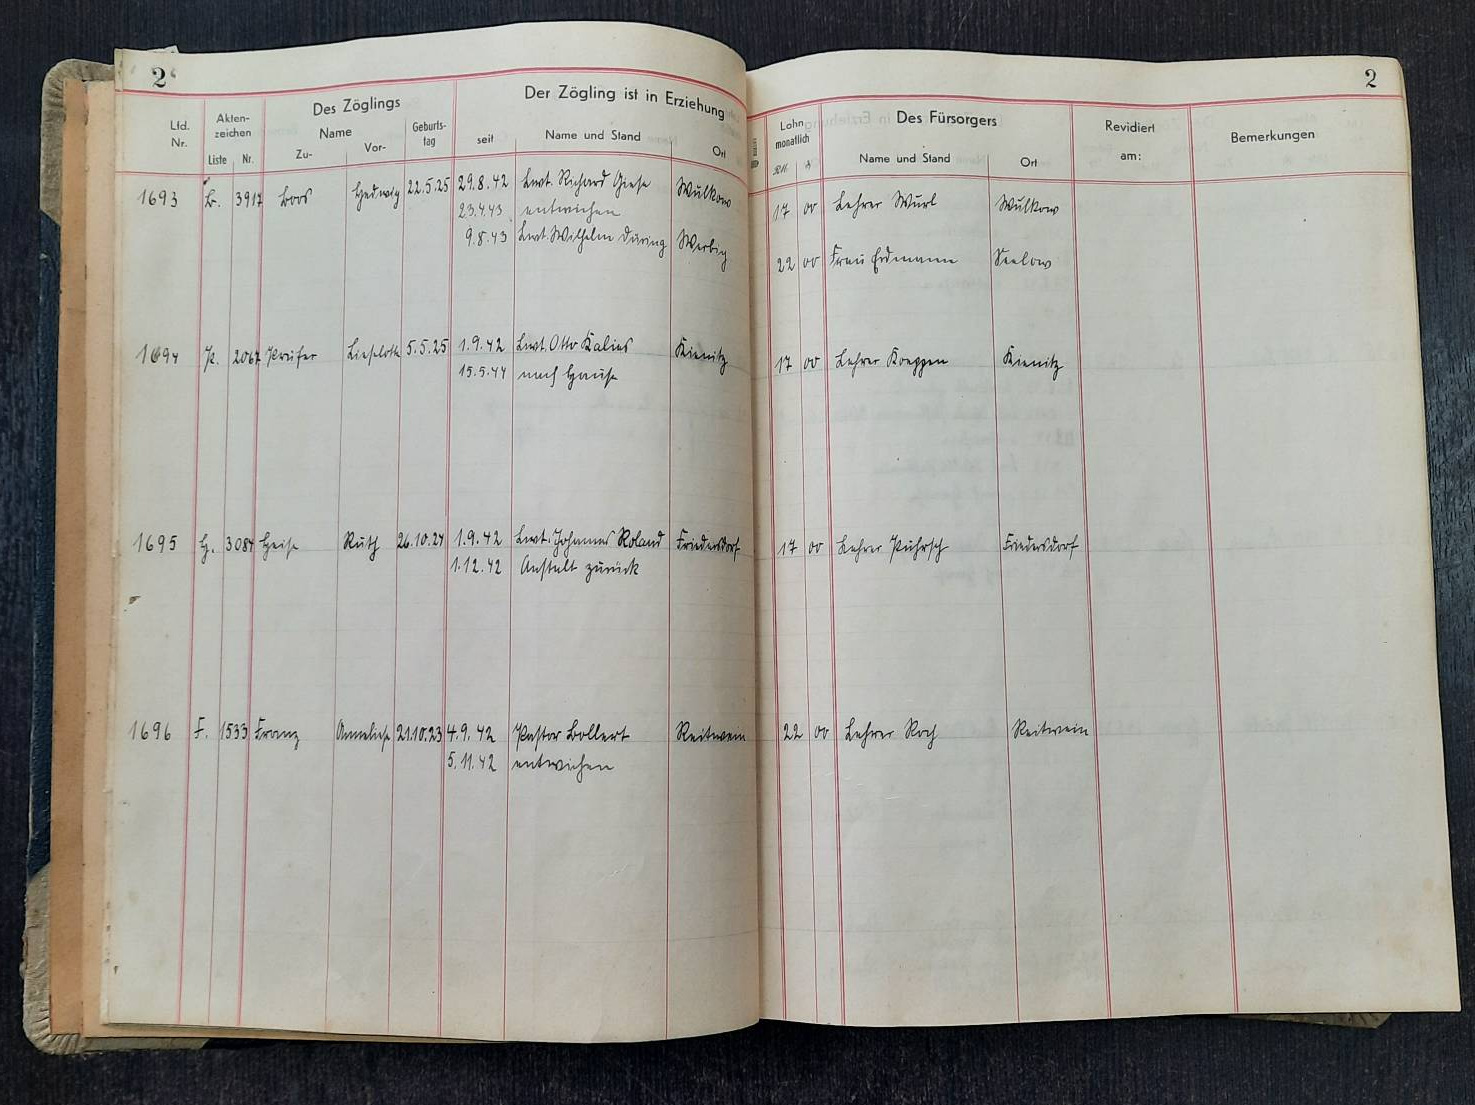 2
2
Lfd. Nr.
Aktenzeichen
Liste Nr.
Des Zöglings
Name
Zu- Vor-
Geburtstag
Der Zögling ist in Erziehung
seit
Name und Stand
Ort
Lohn monatlich
RM
Des Fürsorgers
Name und Stand
Ort
Revidiert am:
Bemerkungen
1693 B. 3917 Hedwig 22.5.25 29.8.42 Lwt. Richard Giese Wulkow 17 00 Lehrer Wurl Wulkow
23.4.43 entwichen
9.8.43 Lwt. Wilhelm Düring Werbig 22 00 Frau Erdmann Seelow
1694 P. 2067 Prüfer Lieselotte 5.5.25 1.9.42 Lwt. Otto Kalies Kienitz 17 00 Lehrer Koeppen Kienitz
15.5.44 nach Hause
1695 H. 3084 Heise Ruth 26.10.24 1.9.42 Lwt. Johannes Roland Friedersdorf 17 00 Lehrer Friedersdorf
1.12.42 Anstalt zurück
1696 F. 1533 Franz Anneliese 21.10.23 4.9.42 Pastor Bollert Reitwein 22 00 Lehrer Koch Reitwein
5.11.42 entwichen